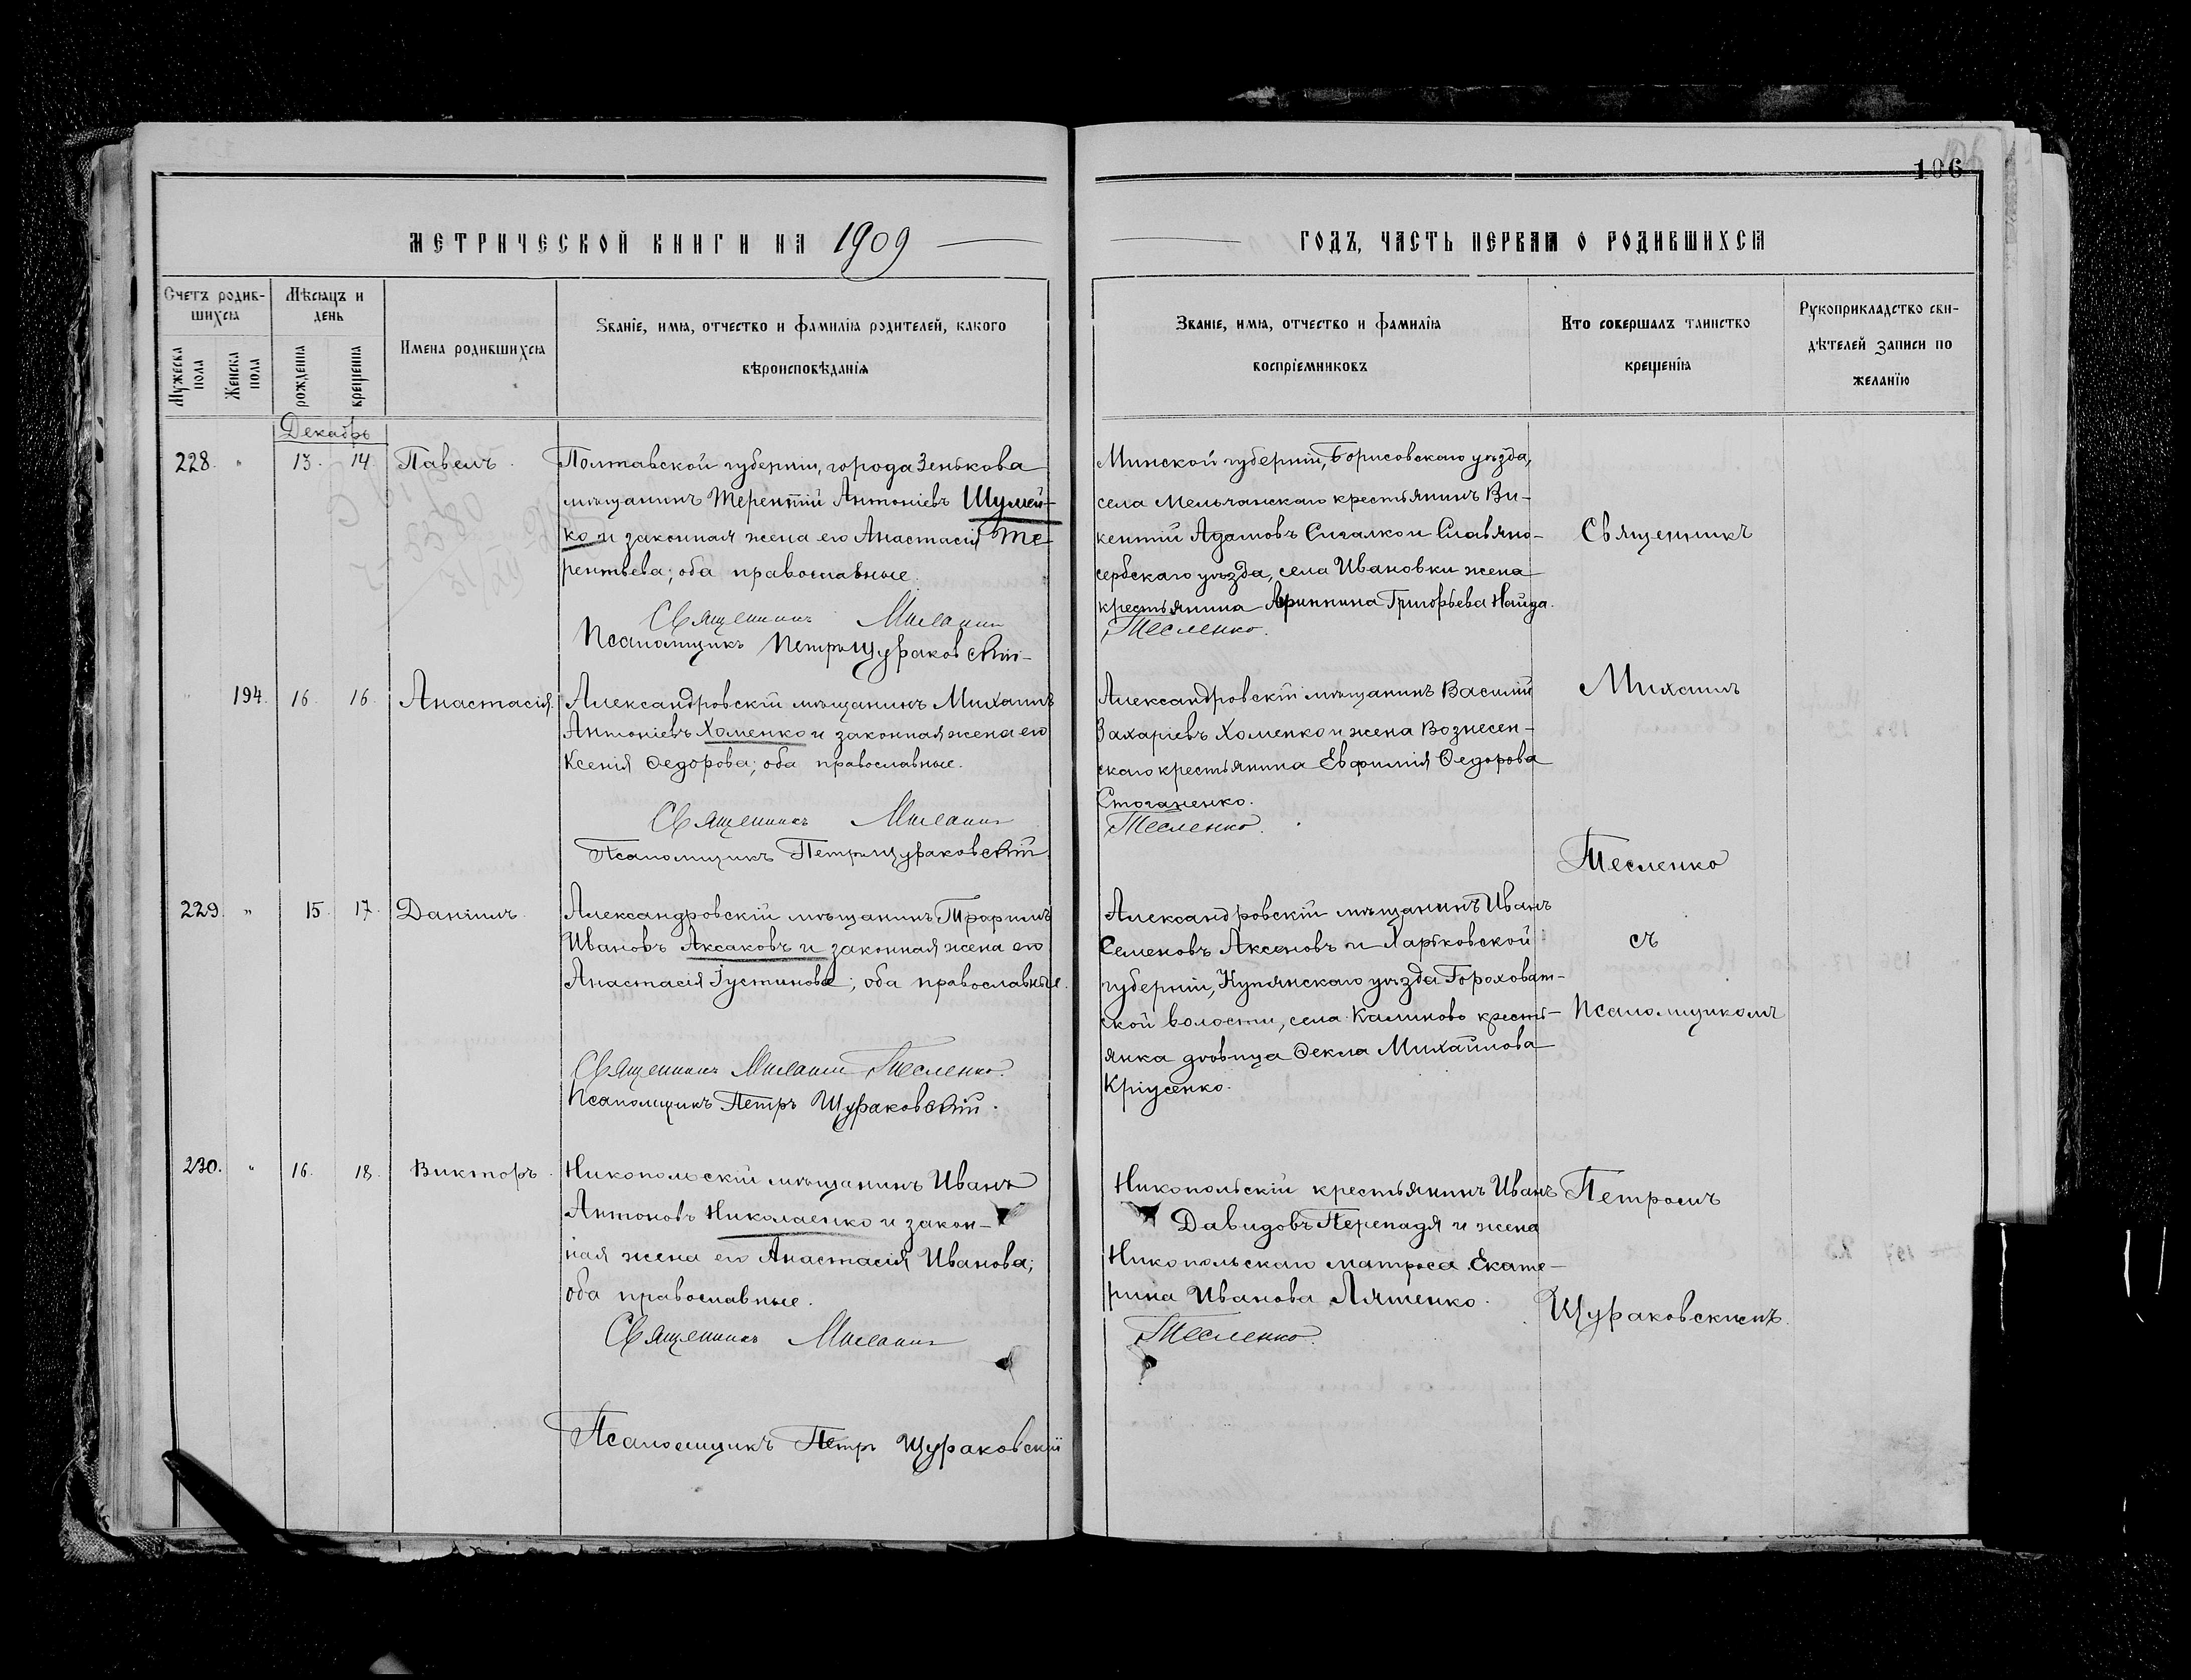 106
МЕТРИЧЕСКОЙ КНИГИ НА 1909
ГОДЪ, ЧАСТЬ ПЕРВАЯ О РОДИВШИХСЯ
Счетъ родив-
шихся
Мужеска
пола
Женска
пола
Мѣсяцъ и
день
рожденія
крещенія
Имена родившихся
Званіе, имя, отчество и фамилія родителей, какого
вѣроисповѣданія
Званіе, имя, отчество и фамилія
воспріемниковъ
Кто совершалъ таинство
крещенія
Рукоприкладство сви-
дѣтелей записи по
желанію
Декабрь
228. " 13. 14 Павелъ.
Полтавской губерніи, города Зенькова
мѣщанинъ Терентій Антоніевъ Шумей-
ко и законная жена его Анастасія Те-
рентьева; оба православные.
Священникъ Михаилъ
Псаломщикъ Петръ Щураковскій
Минской губерніи, Борисовскаго уѣзда,
села Мельчанскаго крестьянинъ Ви-
кентій Адамовъ Сигалко и Славяно-
сербскаго уѣзда, села Ивановки жена
крестьянина Ариннина Григорьева Найда.
Тесленко.
" 194. 16. 16. Анастасія.
Александровскій мѣщанинъ Михаилъ
Антоніевъ Хоменко и законная жена его
Ксенія Ѳедорова; оба православные.
Священникъ Михаилъ
Псаломщикъ Петръ Щураковскій
Александровскій мѣщанинъ Василій
Захаріевъ Хоменко и жена Вознесен-
скаго крестьянина Евфимія Ѳедорова
Стоганенко.
Тесленко.
229. " 15. 17. Даніилъ.
Александровскій мѣщанинъ Трофимъ
Ивановъ Аксаковъ и законная жена его
Анастасія Іустинова; оба православные.
Священникъ Михаилъ Тесленко.
Псаломщикъ Петръ Щураковскій.
Александровскій мѣщанинъ Иванъ
Семеновъ Аксеновъ и Харьковской
губерніи, Купянскаго уѣзда Гороховат-
ской волости, села Калиново кресть-
янка дѣвица Ѳекла Михайлова
Кріусенко.
230. " 16. 18. Викторъ.
Никопольскій мѣщанинъ Иванъ
Антоновъ Николаенко и закон-
ная жена его Анастасія Иванова;
оба православные.
Священникъ Михаилъ
Псаломщикъ Петръ Щураковскій
Никопольскій крестьянинъ Иванъ
Давидовъ Перепадя и жена
Никопольскаго матроса Екате-
рина Иванова Ляшенко.
Тесленко.
Священникъ
Михаилъ
Тесленко
съ
Псаломщикомъ
Петромъ
Щураковскимъ.